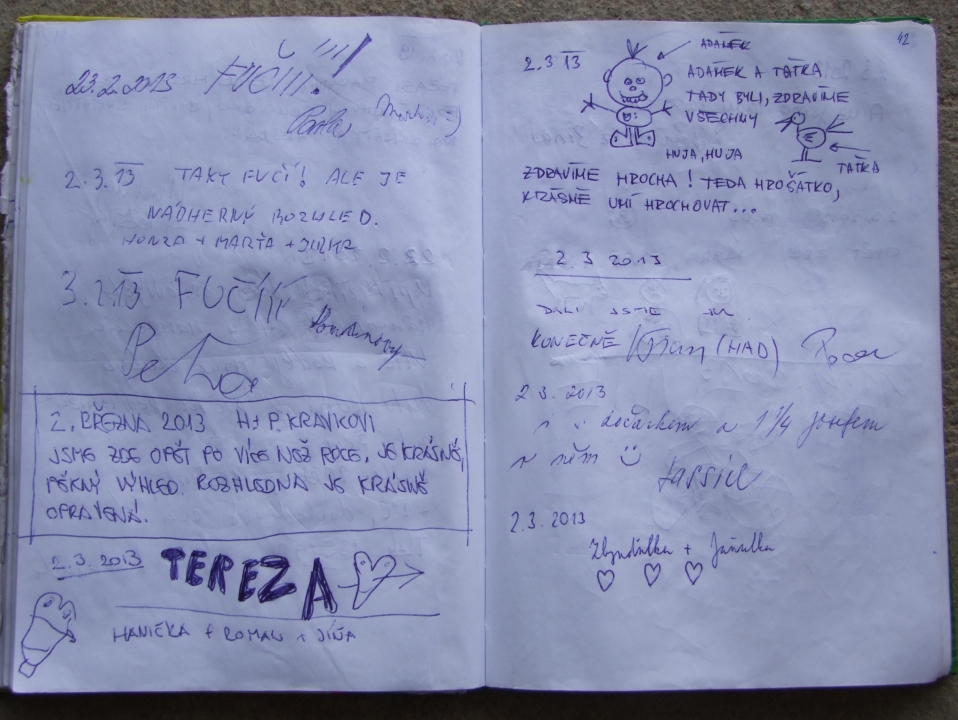 23.2.2013 FUČÍÍÍ!
2.3.13 TAKY FUČÍ! ALE JE
NÁDHERNÝ ROZHLED.
HONZA + MARŤA + JIRKA
3.2.13 FUČÍÍÍ
Petra
2. BŘEZNA 2013 H+P. KRAVKOVI
JSME ZDE OPĚT PO VÍCE NEŽ ROCE, JE KRÁSNĚ,
PĚKNÝ VÝHLED. ROZHLEDNA JE KRÁSNĚ
OPRAVENÁ.
2.3.2013 TEREZA
HANIČKA + ROMAN + JÍŇA
42
2.3 13 ADAMEK
ADAMEK A TAŤKA
TADY BYLI, ZDRAVÍME
VŠECHNY
HUJA, HUJA
TAŤKA
ZDRAVÍME HROCHA! TEDA HROŠÁTKO,
KRÁSNĚ UMÍ HROCHOVAT...
2.3 2013
DALI JSME
KONEČNĚ (HAD)
2 3. 2013
a 1 1/4 josefem
v něm
2.3.2013
Zbyndulka + Janulka